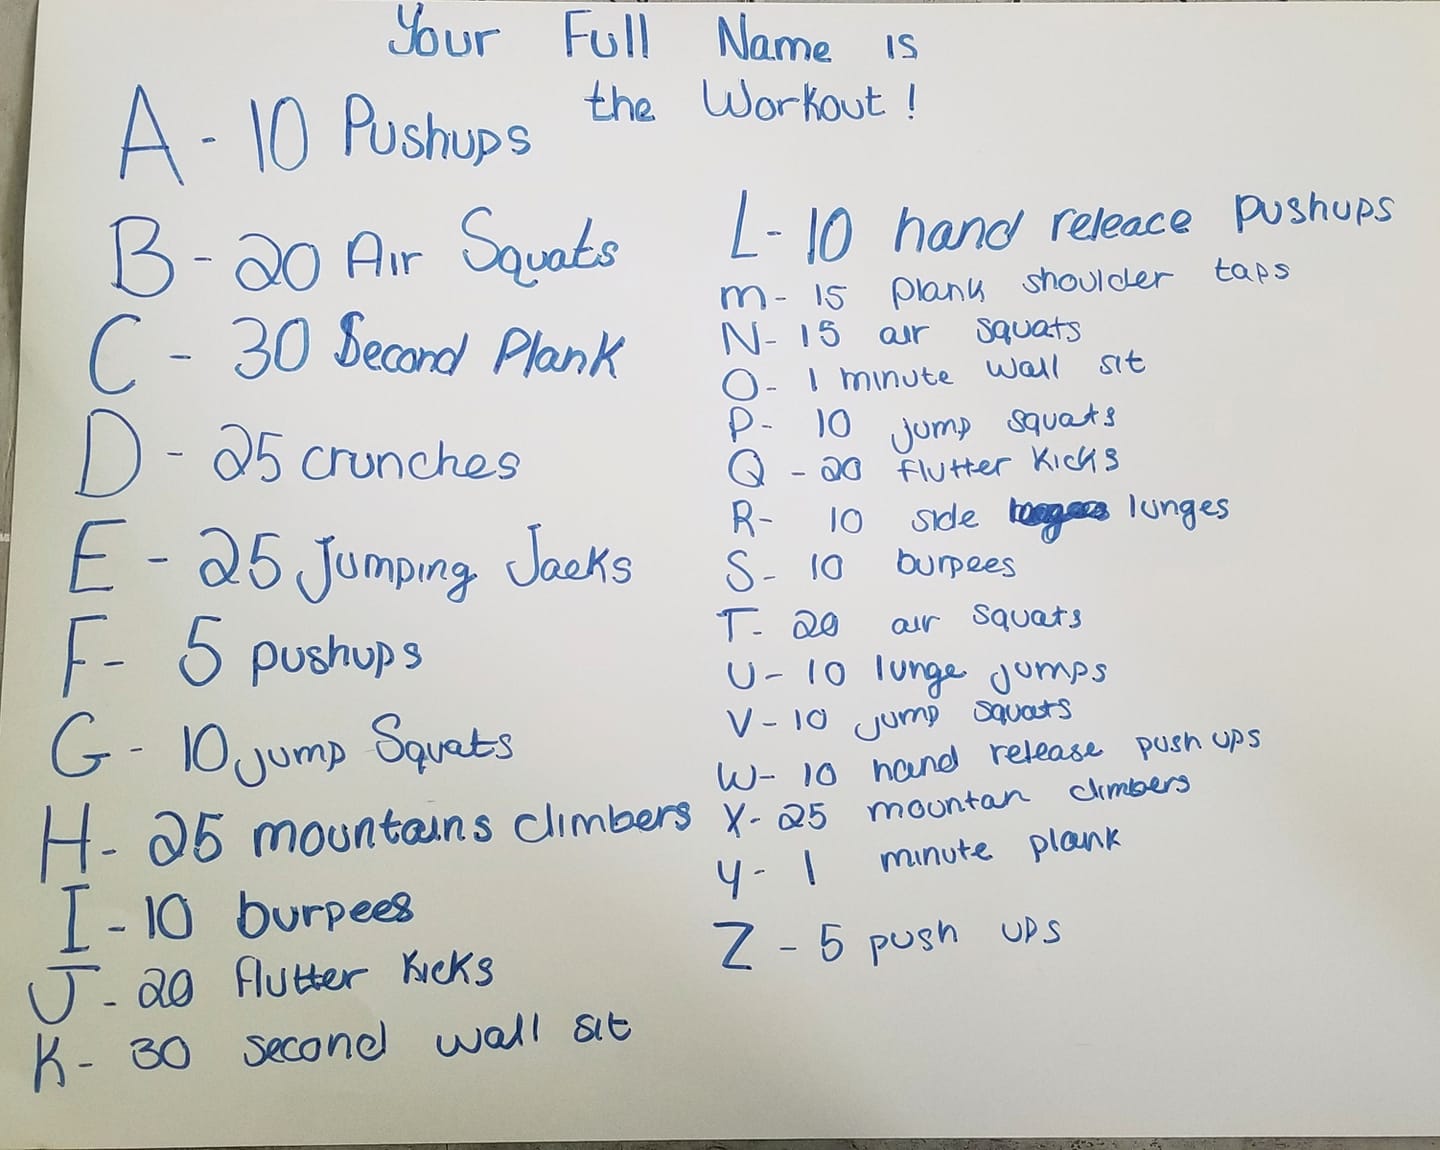 Your Full Name is
the Workout!
A - 10 Pushups
B - 20 Air Squats
C - 30 Second Plank
D - 25 crunches
E - 25 Jumping Jacks
F - 5 pushups
G - 10 jump Squats
H - 25 mountains climbers
I - 10 burpees
J - 20 flutter kicks
K - 30 second wall sit
L - 10 hand releace pushups
M - 15 plank shoulder taps
N - 15 air squats
O - 1 minute wall sit
P - 10 jump squats
Q - 20 flutter kicks
R - 10 side lunges
S - 10 burpees
T - 20 air squats
U - 10 lunge jumps
V - 10 jump squats
W - 10 hand release push ups
X - 25 mountan climbers
Y - 1 minute plank
Z - 5 push ups